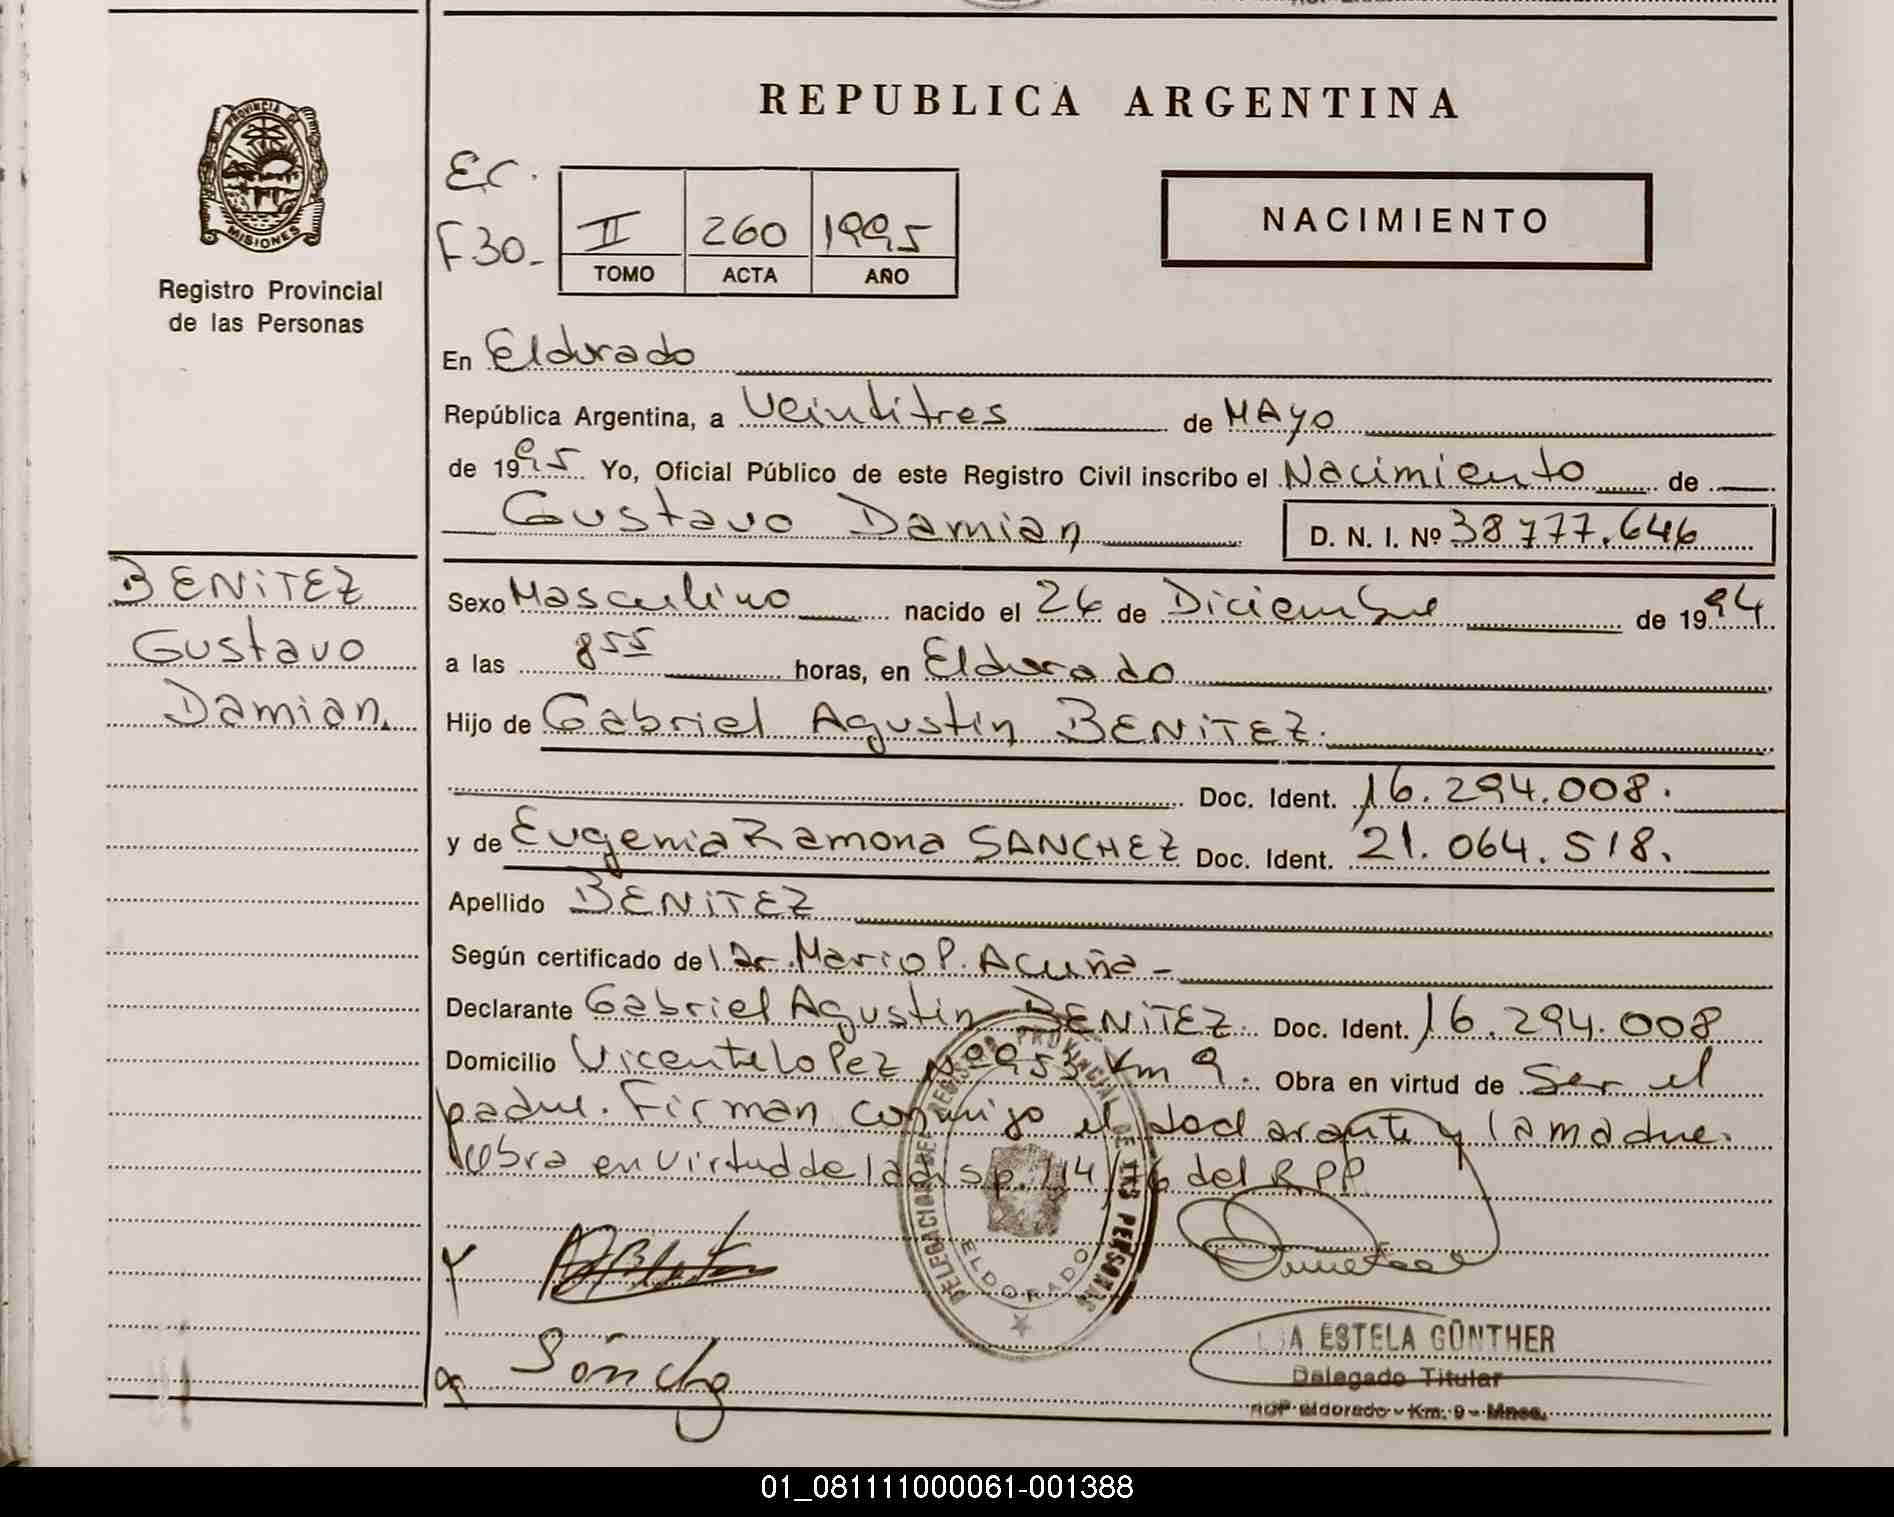 REPUBLICA ARGENTINA
PROVINCIA DE
MISIONES
Registro Provincial
de las Personas
E.C.
F30-
II 260 1995
TOMO ACTA AÑO
NACIMIENTO
En Eldorado
República Argentina, a Veintitres de MAyo
de 1995 Yo, Oficial Público de este Registro Civil inscribo el Nacimiento de
Gustavo Damian D. N. I. Nº 38777.646
BENiTEZ
Gustavo
Damian.
Sexo Masculino nacido el 26 de Diciembre de 1994
a las 855 horas, en Eldorado
Hijo de Gabriel Agustin BENiTEZ.
Doc. Ident. 16.294.008.
y de Eugenia Ramona SANCHEZ Doc. Ident. 21.064.518.
Apellido BENiTEZ
Según certificado del Dr. Mario P. Acuña-
Declarante Gabriel Agustin BENiTEZ Doc. Ident. 16.294.008
Domicilio Vicente Lopez Nº953 Km 9. Obra en virtud de Ser el
padre. Firman conmigo el declarante y la madre.
obra en virtud de la disp. 114/76 del R P P.
DELEGACION DEL REGISTRO PROVINCIAL DE LAS PERSONAS
ELDORADO
ESTELA GÜNTHER
Delegado Titular
Eldorado - Km. 9 - Mnes.
01_081111000061-001388